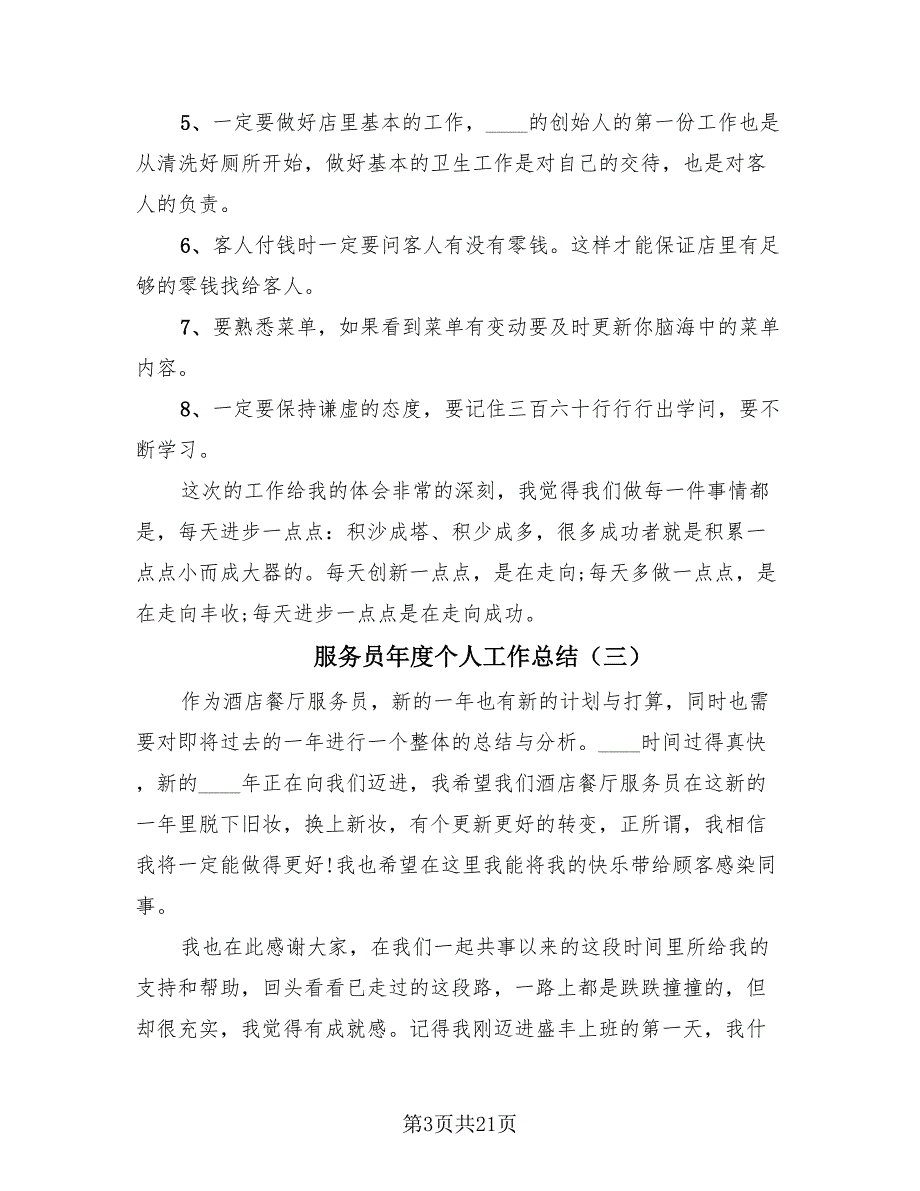 5、一定要做好店里基本的工作，____的创始人的第一份工作也是
从清洗好厕所开始，做好基本的卫生工作是对自己的交待，也是对客
人的负责。
6、客人付钱时一定要问客人有没有零钱。这样才能保证店里有足
够的零钱找给客人。
7、要熟悉菜单，如果看到菜单有变动要及时更新你脑海中的菜单
内容。
8、一定要保持谦虚的态度，要记住三百六十行行行出学问，要不
断学习。
这次的工作给我的体会非常的深刻，我觉得我们做每一件事情都
是，每天进步一点点：积沙成塔、积少成多，很多成功者就是积累一
点点小而成大器的。每天创新一点点，是在走向;每天多做一点点，是
在走向丰收;每天进步一点点是在走向成功。
服务员年度个人工作总结（三）
作为酒店餐厅服务员，新的一年也有新的计划与打算，同时也需
要对即将过去的一年进行一个整体的总结与分析。____时间过得真快
，新的____年正在向我们迈进，我希望我们酒店餐厅服务员在这新的
一年里脱下旧妆，换上新妆，有个更新更好的转变，正所谓，我相信
我将一定能做得更好!我也希望在这里我能将我的快乐带给顾客感染同
事。
我也在此感谢大家，在我们一起共事以来的这段时间里所给我的
支持和帮助，回头看看已走过的这段路，一路上都是跌跌撞撞的，但
却很充实，我觉得有成就感。记得我刚迈进盛丰上班的第一天，我什
第3页共21页